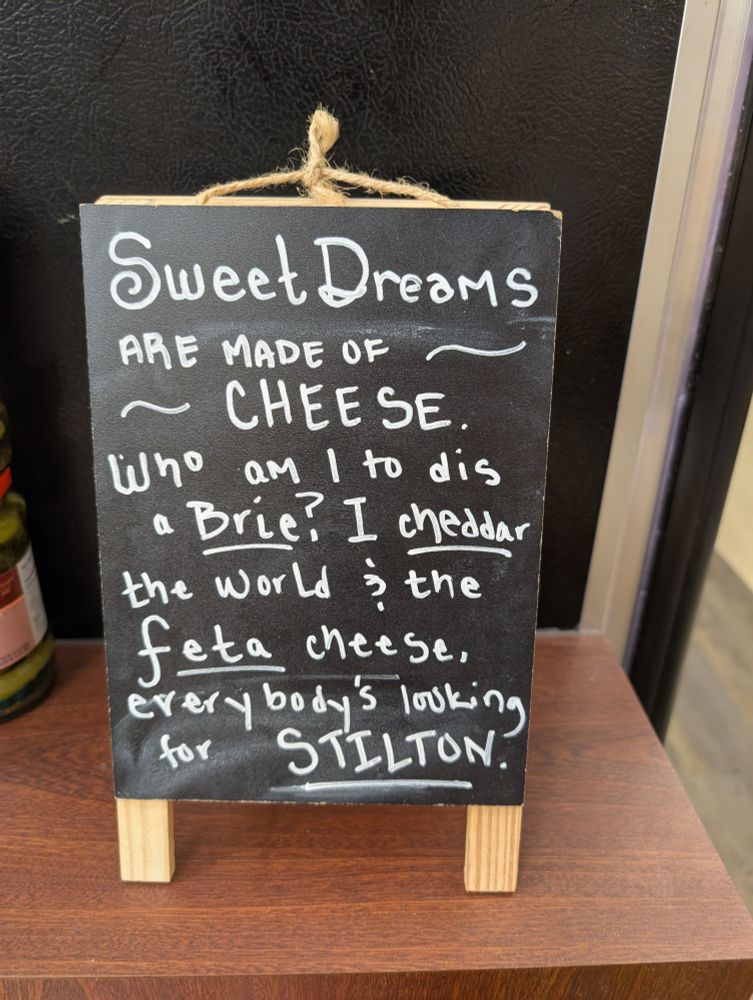 Sweet Dreams
ARE MADE OF
CHEESE.
Who am I to dis
a Brie? I cheddar
the world & the
feta cheese,
everybody's looking
for STILTON.